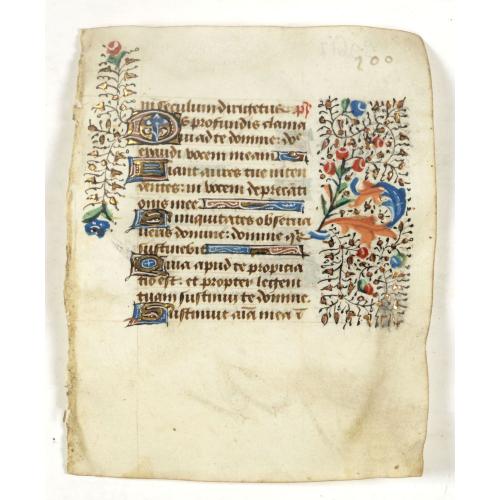 200
in seculum dirigetur. ps
De profundis clama
ui ad te domine: do
exaudi vocem meam
Fiant aures tue inten
dentes: in vocem deprecati
onis mee.
Si iniquitates observa
veris domine: domine
sustinebit
Quia apud te propicia
tio est: et propter legem
tuam sustinui te domine.
Sustinuit aia mea i